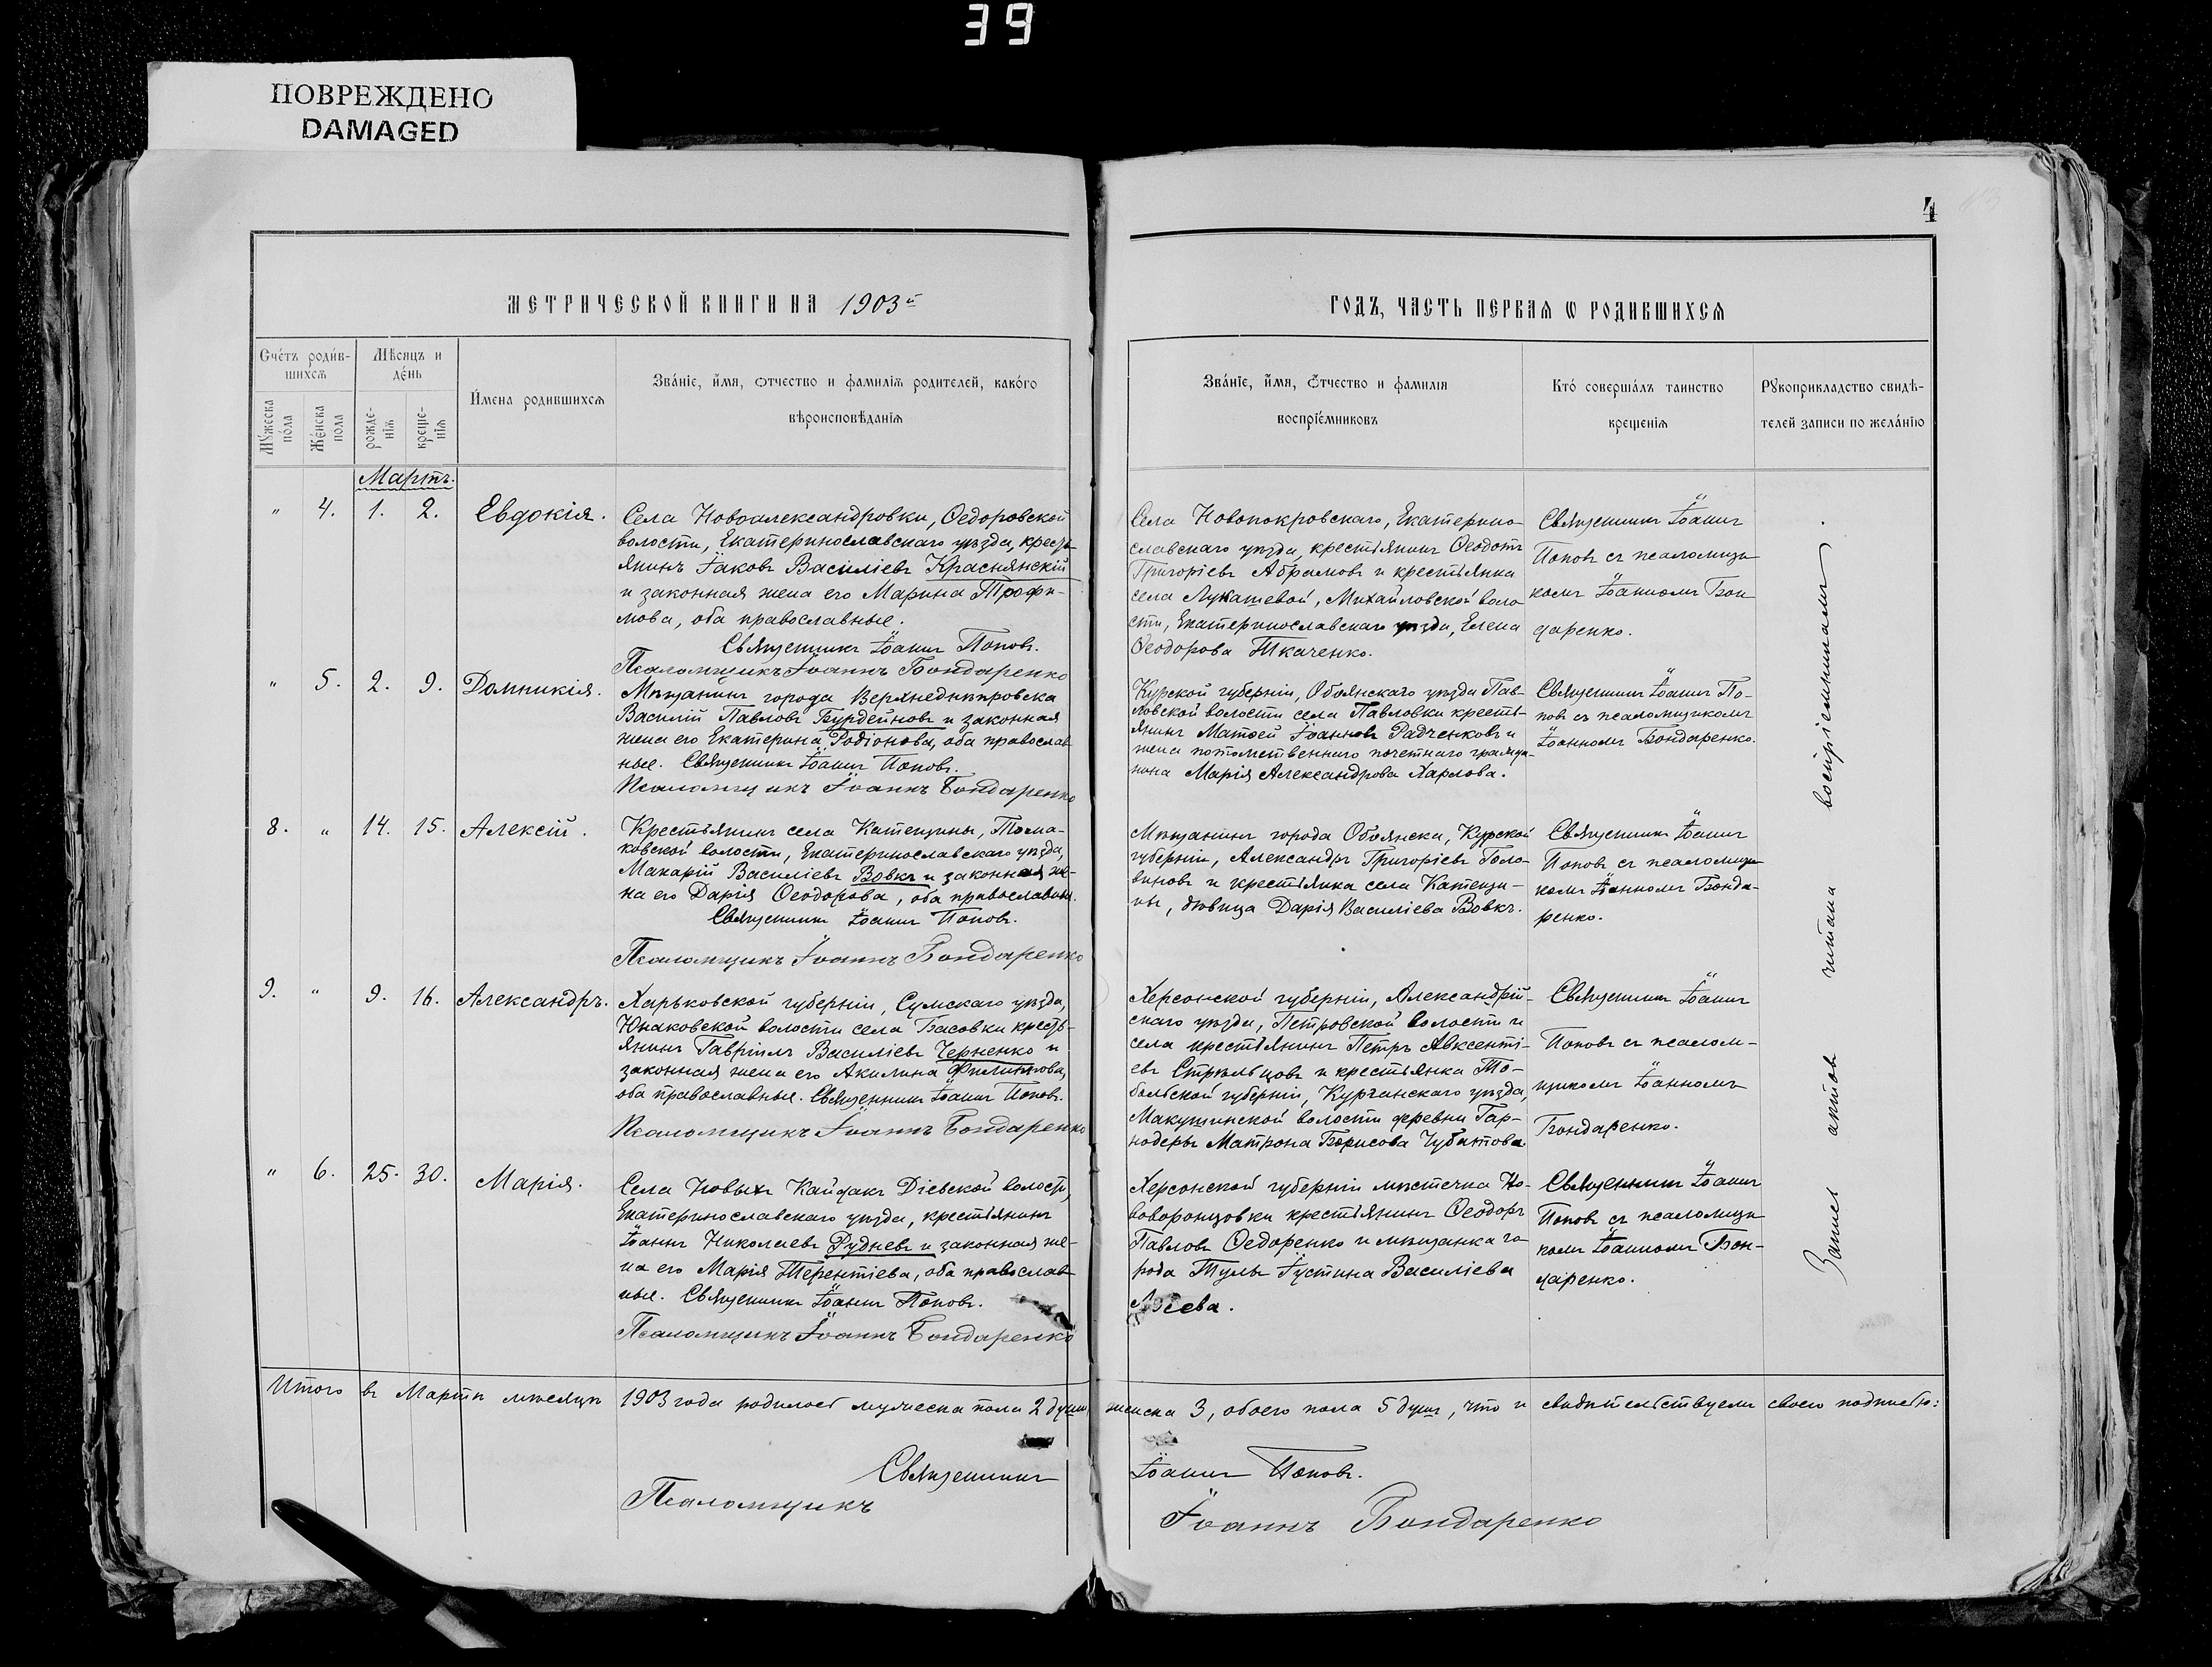 39
ПОВРЕЖДЕНО
DAMAGED
4
МЕТРИЧЕСКОЙ КНИГИ НА 1903й
ГОДЪ, ЧАСТЬ ПЕРВАѦ Ѡ РОДИВШИХСѦ
Счетъ родив-
шихсѧ
Мѣсяцъ и
день
Имена родившихсѧ
Званіе, имя, отчество и фамиліѧ родителей, какого
вѣроисповѣданіѧ
Мужеска
пола
Женска
пола
рожде-
ніѧ
креще-
ніѧ
Званіе, имя, отчество и фамилія
воспріемниковъ
Кто совершалъ таинство
крещеніѧ
Рукоприкладство свидѣ-
телей записи по желанію
Мартъ.
" 4. 1. 2. Евдокія.
Села Новоалександровки, Ѳедоровской
волости, Екатеринославскаго уѣзда, кресть-
янинъ Іаковъ Василіевъ Краснянскій
и законная жена его Марина Трофи-
мова, оба православные.
Священникъ Іоаннъ Поповъ.
Псаломщикъ Іоаннъ Бондаренко
Села Новопокровскаго, Екатерино-
славскаго уѣзда, крестьянинъ Ѳеодотъ
Григоріевъ Абрамовъ и крестьянка
села Лукашевой, Михайловской воло-
сти, Екатеринославскаго уѣзда, Елена
Ѳеодорова Ткаченко.
Священникъ Іоаннъ
Поповъ съ псаломщи-
комъ Іоанномъ Бон
даренко.
" 5. 2. 9. Домникія.
Мѣщанинъ города Верхнеднѣпровска
Василій Павловъ Бурдейновъ и законная
жена его Екатерина Родіонова, оба православ
ные. Священникъ Іоаннъ Поповъ.
Псаломщикъ Іоаннъ Бондаренко
Курской губерніи, Обоянскаго уѣзда Пав-
ловской волости села Павловки кресть-
янинъ Матѳей Іоанновъ Радченковъ и
жена потомственнаго почетнаго гражда-
нина Марія Александрова Харлова.
Священникъ Іоаннъ По-
повъ съ псаломщикомъ
Іоанномъ Бондаренко.
8. " 14. 15. Алексій.
Крестьянинъ села Катещины, Тома-
ковской волости, Екатеринославскаго уѣзда,
Макарій Василіевъ Вовкъ и законная же-
на его Дарія Ѳеодорова, оба православные.
Священникъ Іоаннъ Поповъ.
Псаломщикъ Іоаннъ Бондаренко
Мѣщанинъ города Обоянска, Курской
губерніи, Александръ Григоріевъ Голо-
виновъ и крестьянка села Катещи-
ны, дѣвица Дарія Василіева Вовкъ.
Священникъ Іоаннъ
Поповъ съ псаломщи-
комъ Іоанномъ Бонда-
ренко.
9. " 9. 16. Александръ.
Харьковской губерніи, Сумскаго уѣзда,
Юнаковской волости села Басовки кресть-
янинъ Гавріилъ Василіевъ Черненко и
законная жена его Акилина Филиппова,
оба православные. Священникъ Іоаннъ Поповъ.
Псаломщикъ Іоаннъ Бондаренко
Херсонской губерніи, Александрій-
скаго уѣзда, Петровской волости и
села крестьянинъ Петръ Авксенті-
евъ Стрѣльцовъ и крестьянка То-
больской губерніи, Курганскаго уѣзда,
Макушинской волости деревни
Матрона Борисова Чубатова
Священникъ Іоаннъ
Поповъ съ псалом-
щикомъ Іоанномъ
Бондаренко.
" 6. 25. 30. Марія.
Села Новыхъ Кайдакъ Діевской волости,
Екатеринославскаго уѣзда, крестьянинъ
Іоаннъ Николаевъ Рудневъ и законная же-
на его Марія Терентіева, оба православ
ные. Священникъ Іоаннъ Поповъ.
Псаломщикъ Іоаннъ Бондаренко
Херсонской губерніи мѣстечка Но-
воворонцовки крестьянинъ Ѳеодоръ
Павловъ Ѳедоренко и мѣщанка го-
рода Тулы Іустина Василіева
Священникъ Іоаннъ
Поповъ съ псаломщи
комъ Іоанномъ Бон-
даренко.
Запись актов читана воспріемникамъ
Итого въ Мартѣ мѣсяцѣ 1903 года родилось мужеска пола 2 душ, женска 3, обоего пола 5 душъ, что и свидѣтельствуемъ своею подписью:
Священникъ Іоаннъ Поповъ.
Псаломщикъ Іоаннъ Бондаренко